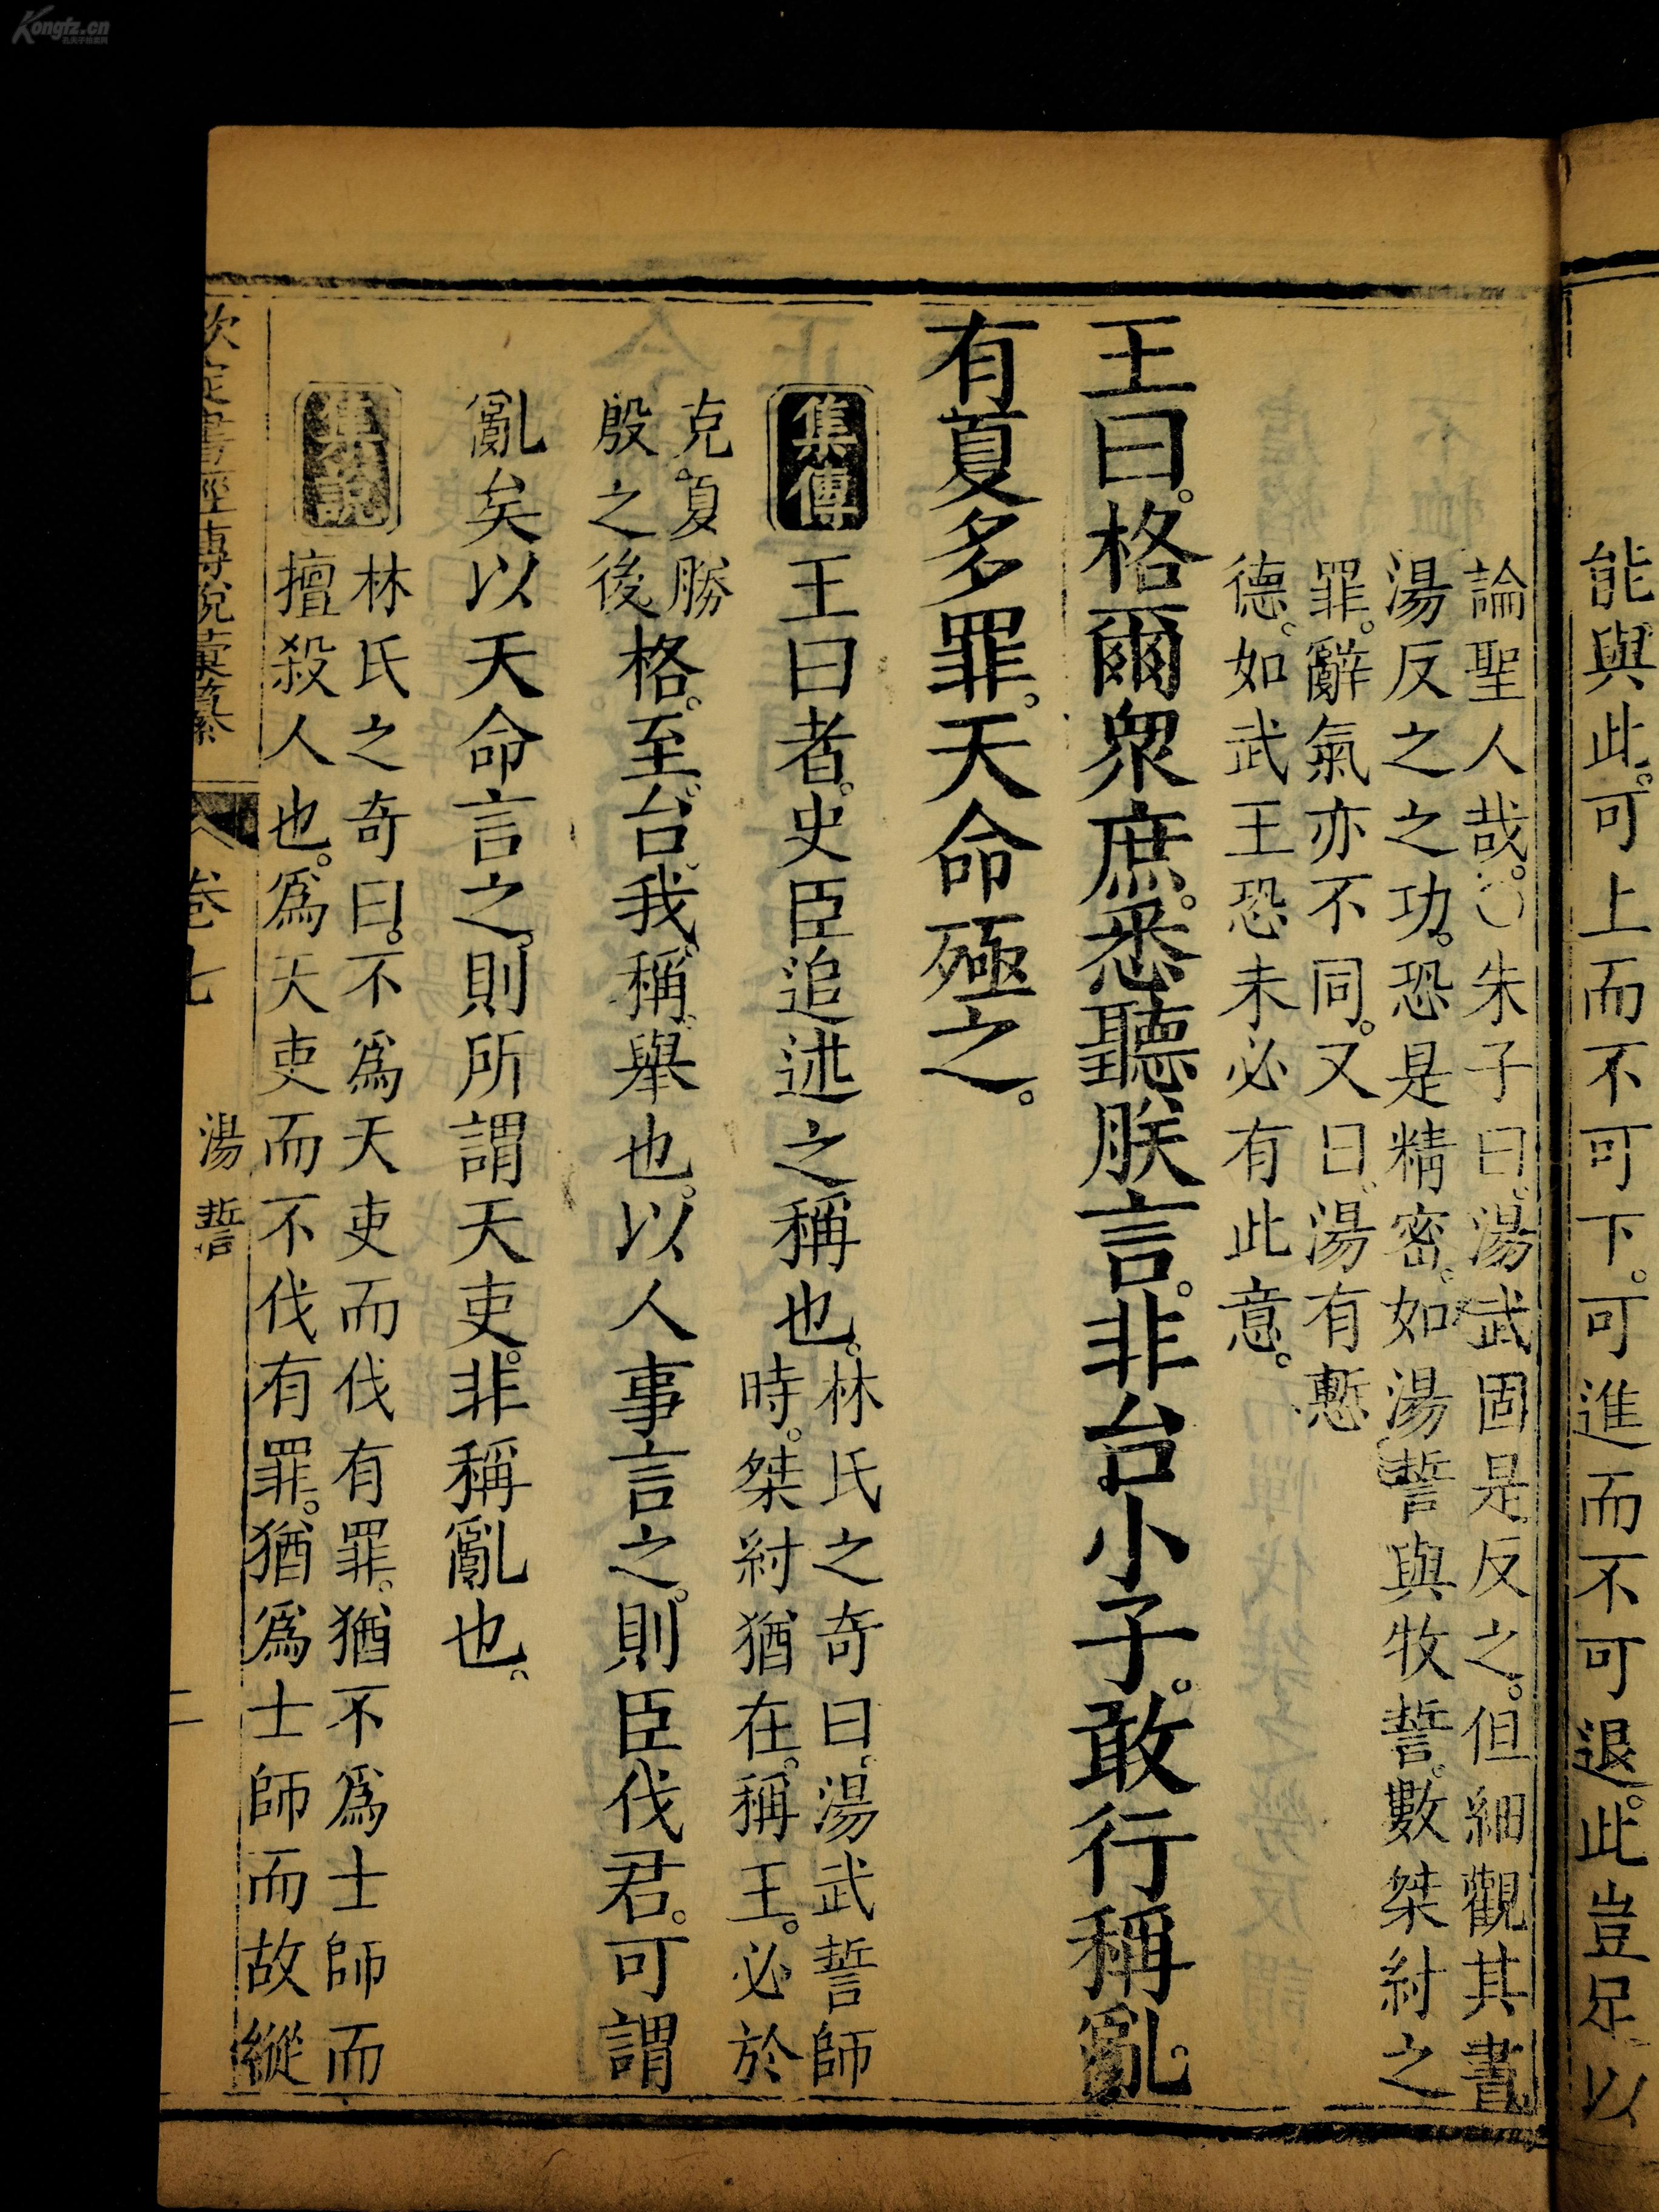 能與此。可上而不可下。可進而不可退。此豈足以
論聖人哉。○朱子曰。湯武固是反之。但細觀其書
湯反之之功。恐是精密。如湯誓與牧誓。數桀紂之
罪。辭氣亦不同。又曰。湯有慙
德。如武王恐未必有此意。
王曰。格爾衆庶。悉聽朕言。非台小子。敢行稱亂。
有夏多罪。天命殛之。
集傳
王曰者。史臣追述之稱也。
林氏之奇曰。湯武誓師
時。桀紂猶在。稱王。必於
克夏勝
殷之後
格。至。台。我。稱。舉也。以人事言之。則臣伐君。可謂
亂矣以天命言之。則所謂天吏。非稱亂也。
集說
林氏之奇曰。不爲天吏而伐有罪。猶不爲士師而
擅殺人也。爲天吏而不伐有罪。猶爲士師而故縱
欽定書經傳說彙纂 卷七 湯誓 二
Kongfz.cn